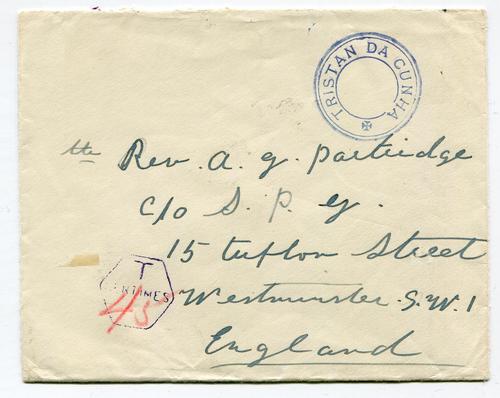 TRISTAN DA CUNHA
the Rev. A. G. Partridge
c/o S. P. G.
15 Tufton Street
T
NTIMES
45
Westminster. S.W.1
England